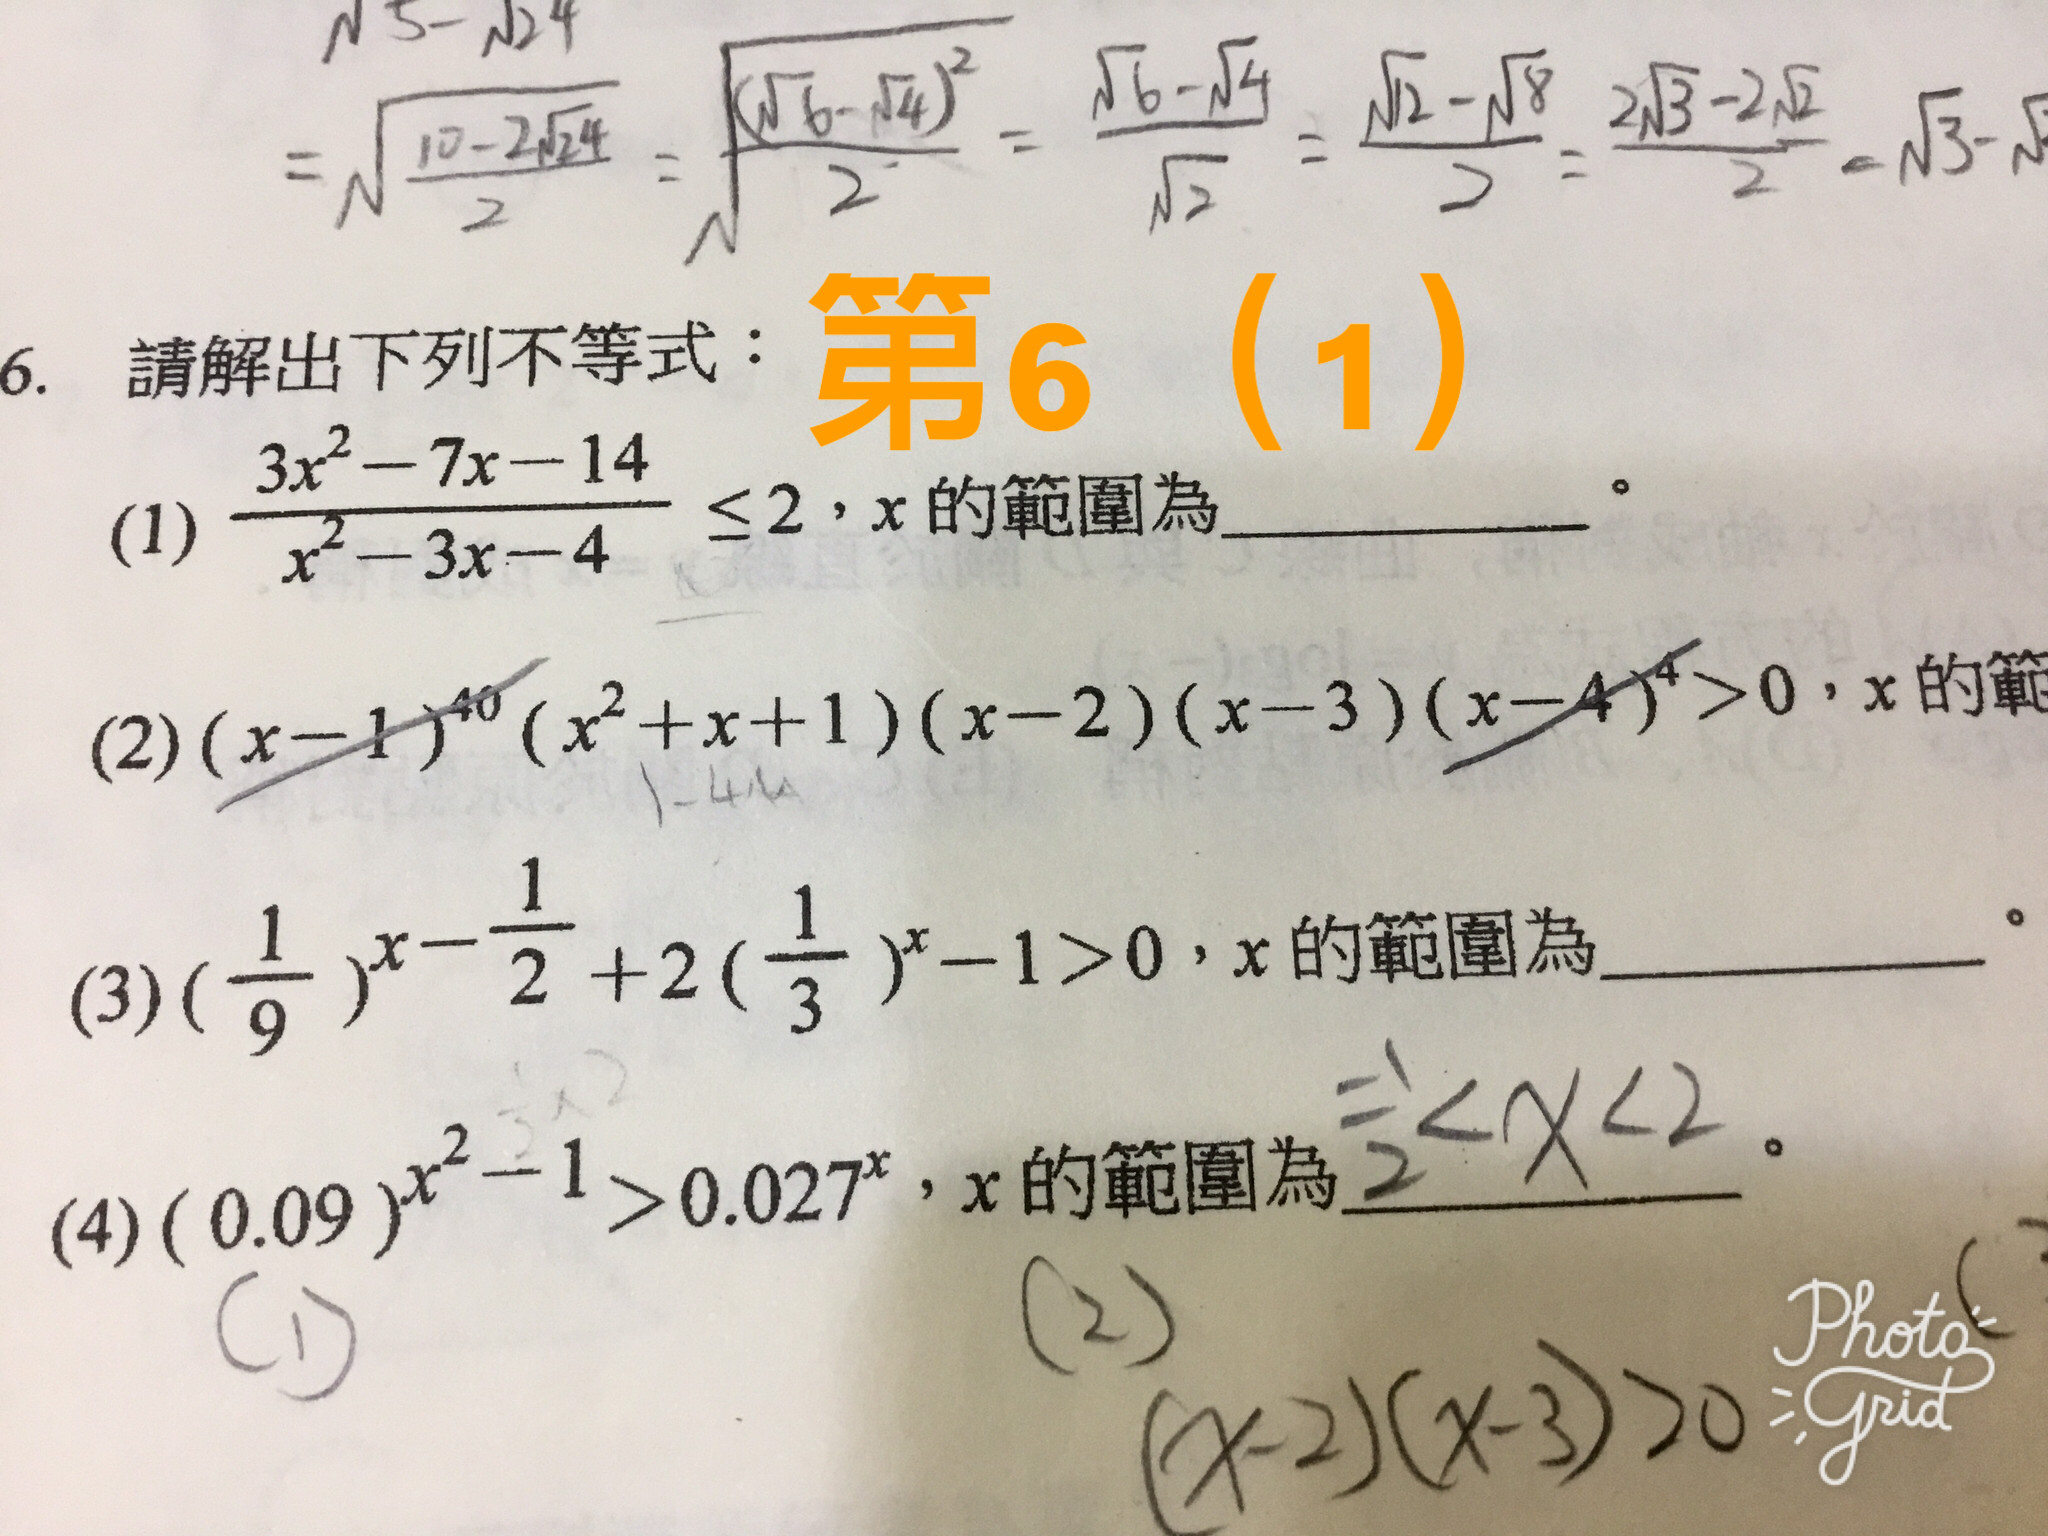 √5-√24
=√(10-2√24)/2 = √(√6-√4)²/2 = (√6-√4)/√2 = (√12-√8)/2 = (2√3-2√2)/2 = √3-√2
6. 請解出下列不等式： 第6（1）
(1) (3x²-7x-14)/(x²-3x-4) ≤2，x 的範圍為__________。
(2) (x-1)⁴⁰(x²+x+1)(x-2)(x-3)(x-4)⁴>0，x 的範
1-4
(3) (1/9)^(x-1/2)+2(1/3)^x-1>0，x 的範圍為__________。
(4) (0.09)^(x²-1)>0.027^x，x 的範圍為 -1/2<x<2 。
(1) (2)
(x-2)(x-3)>0
Photo
Grid